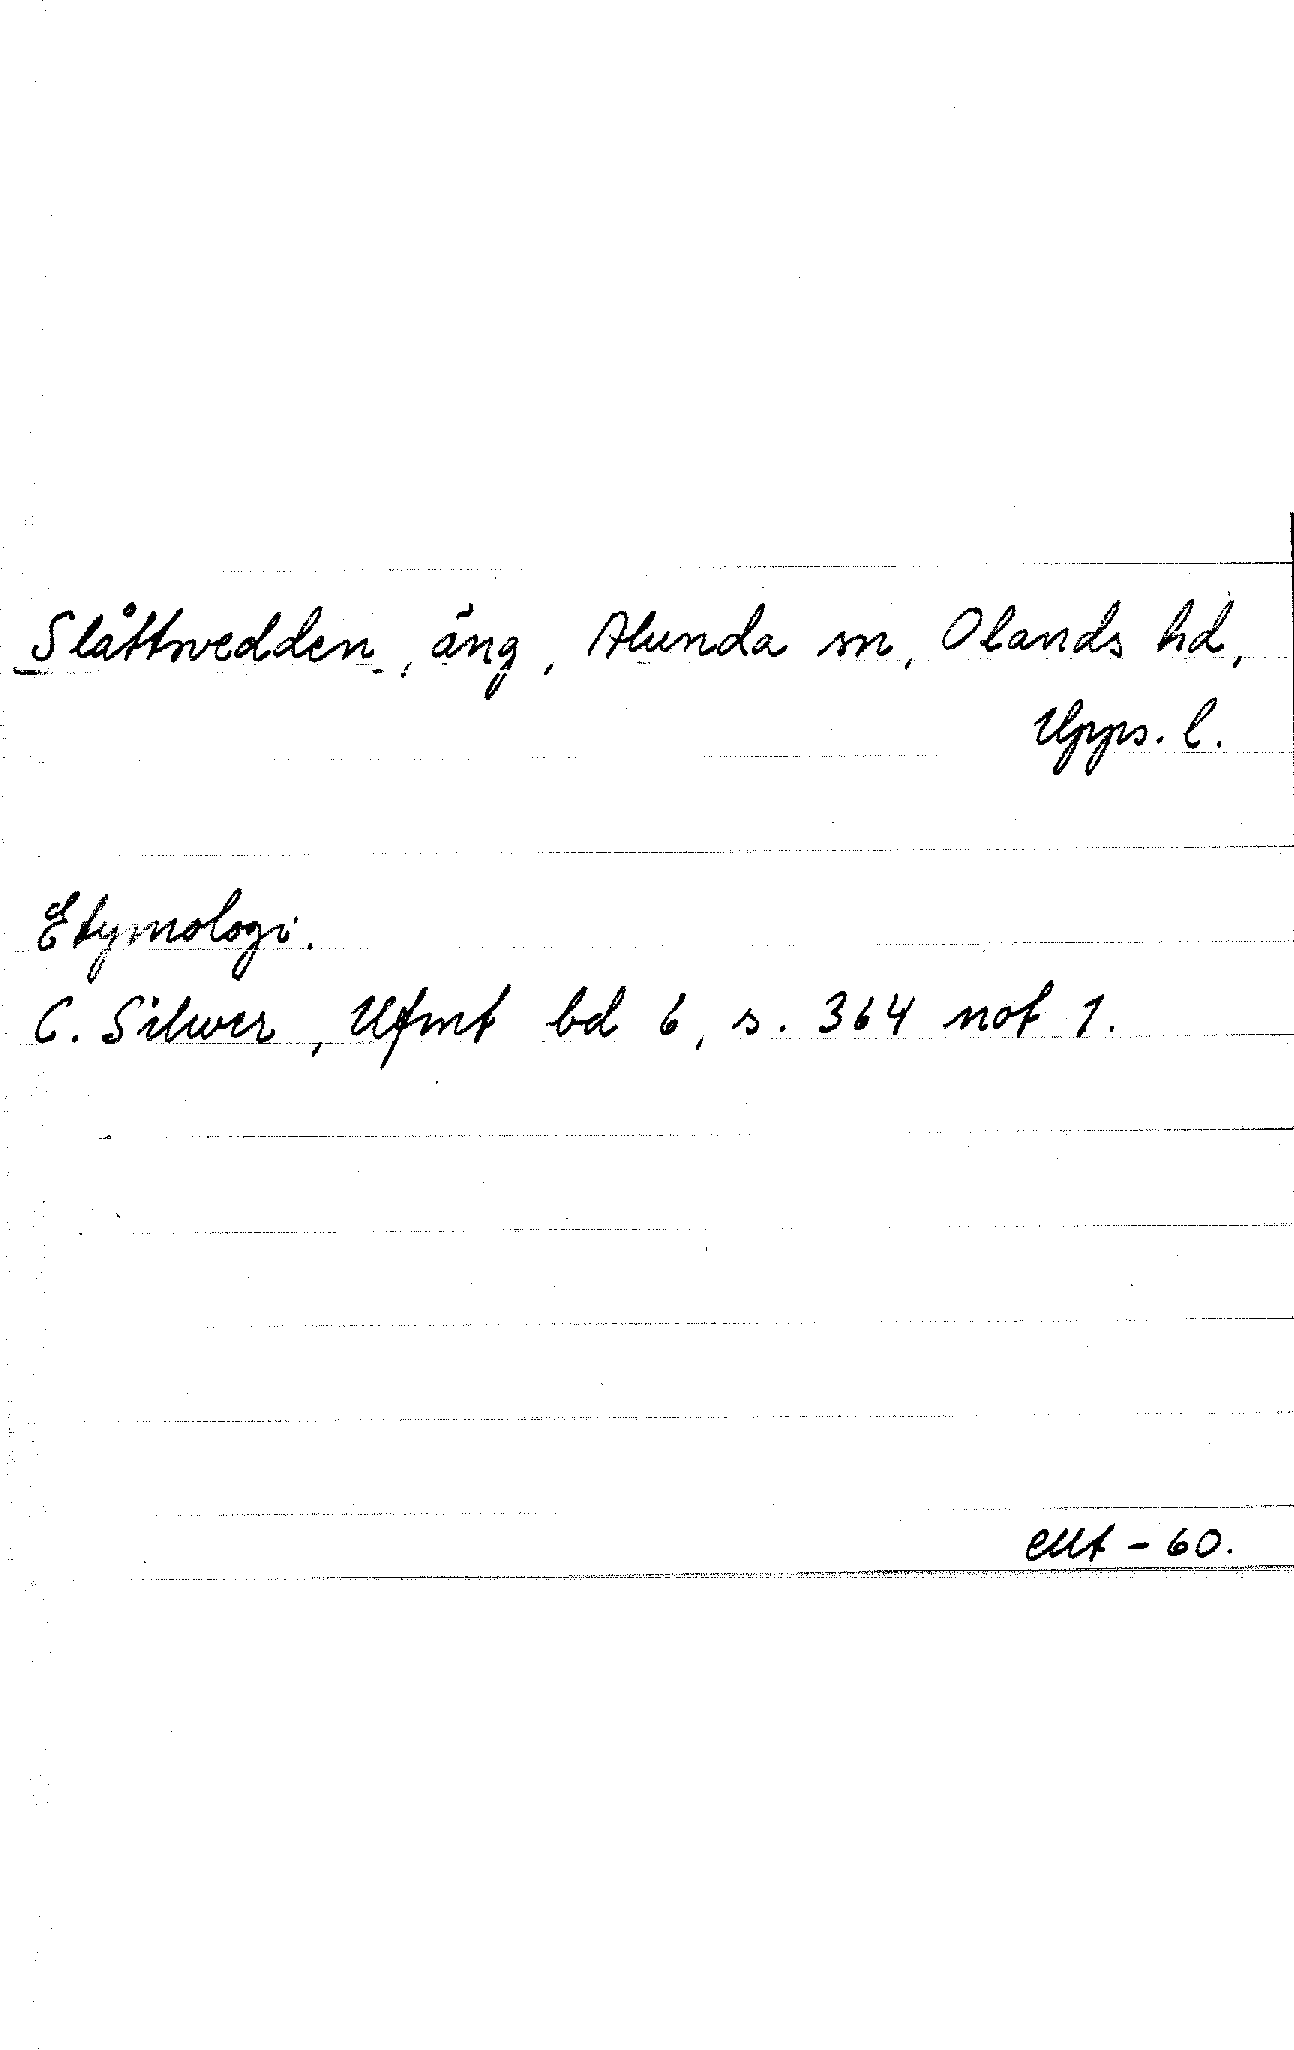 Slåttwedden, äng, Alunda sn, Olands hd,
Upps. l.
Etymologi.
C. Silwer, Ufmt bd 6, s. 364 not 1.
- 60.